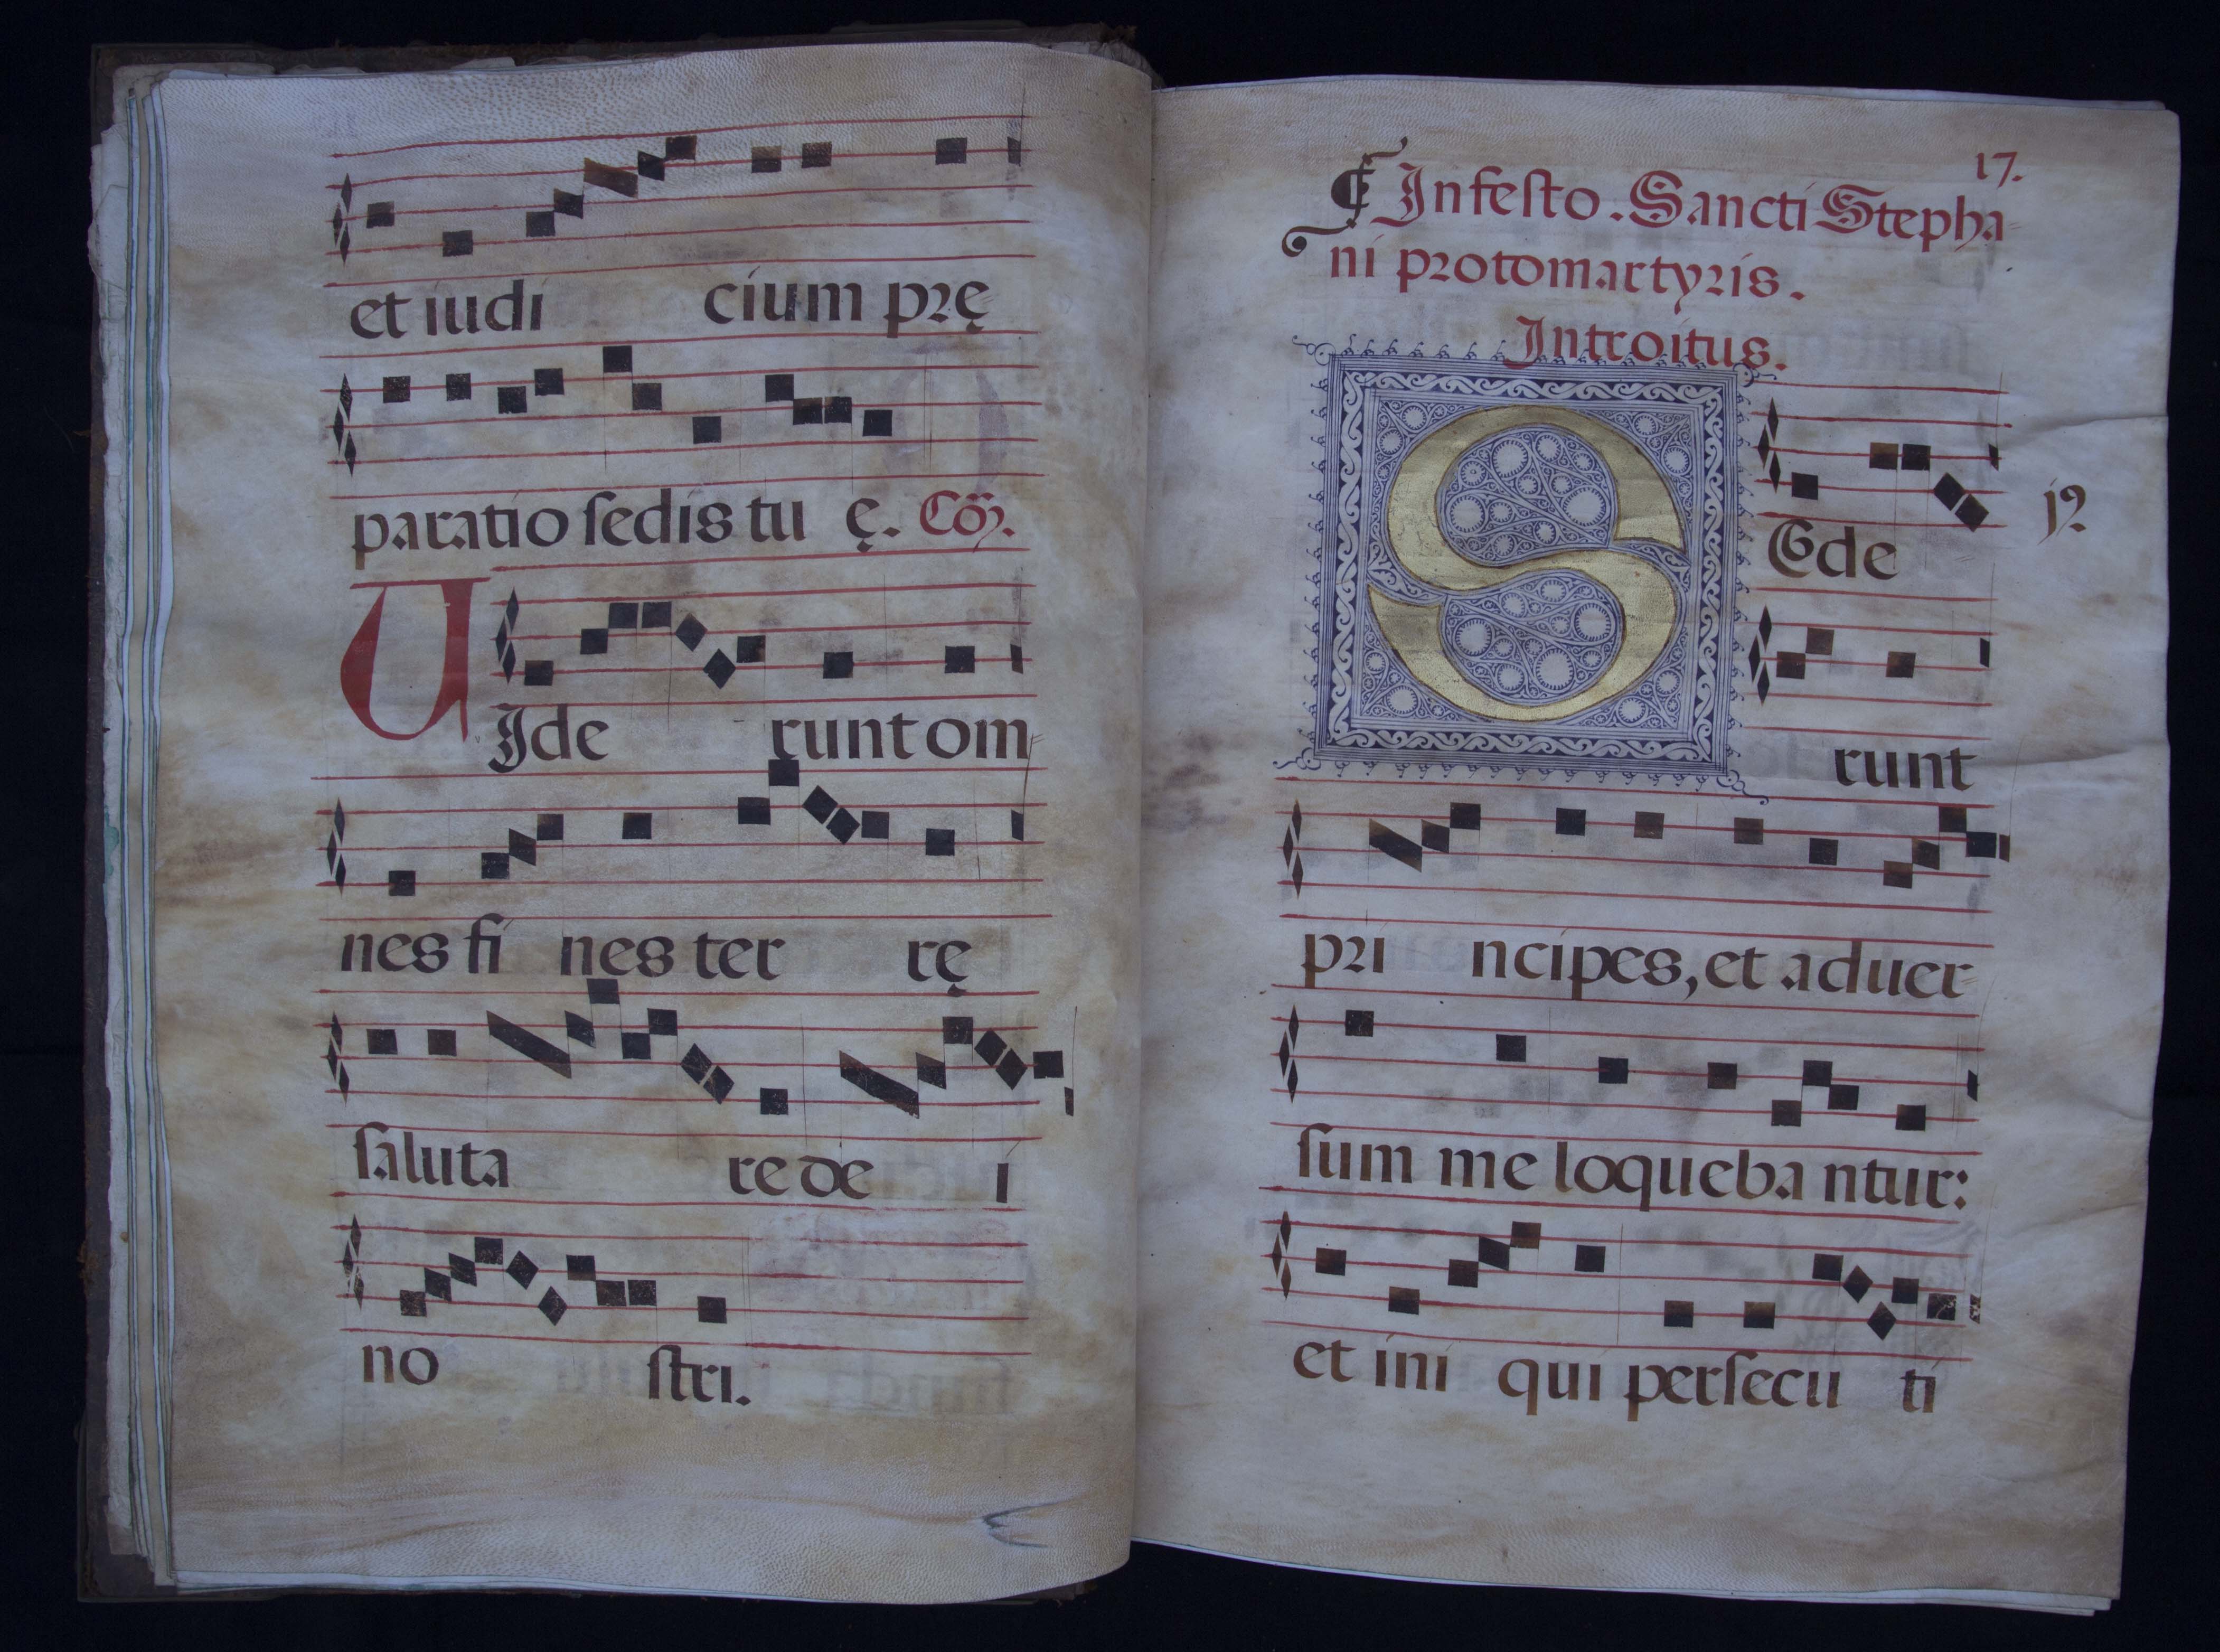 et iudi cium prę
paratio ſedis tu ę. Cõ.
VIde runt om
nes fi nes ter rę
ſaluta re de i
no ſtri.
17.
In feſto. Sancti Stepha
ni protomartyris.
Introitus.
SEde
runt
pri ncipes, et aduer
ſum me loqueba ntur:
et ini qui perſecu ti